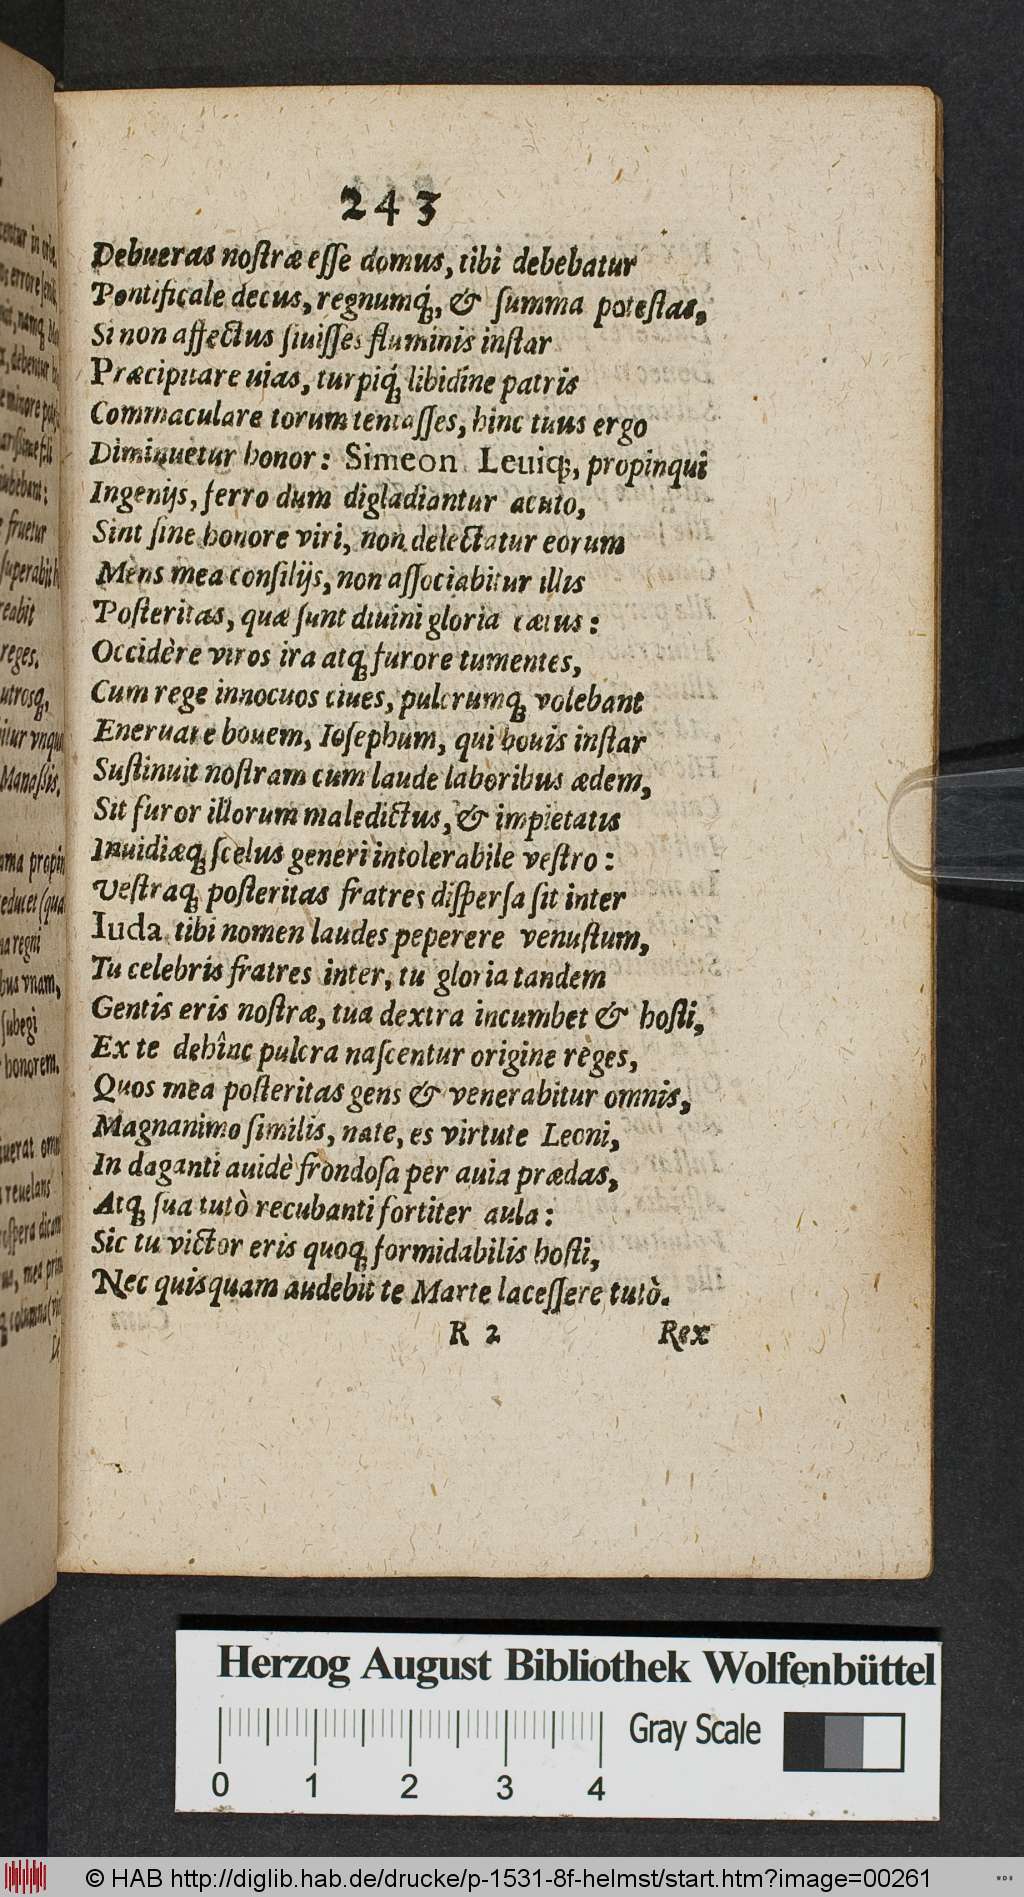 243
Debueras nostræ esse domus, tibi debebatur
Pontificale decus, regnumq́;, & summa potestas,
Si non affectus siuisses fluminis instar
Præcipitare uias, turpiq́; libidine patris
Commaculare torum tentasses, hinc tuus ergo
Diminuetur honor: Simeon Leuiq;, propinqui
Ingenijs, ferro dum digladiantur acuto,
Sint sine honore viri, non delectatur eorum
Mens mea consilijs, non associabitur illis
Posteritas, quæ sunt diuini gloria cætus:
Occidère viros ira atq; furore tumentes,
Cum rege innocuos ciues, pulcrumq; volebant
Eneruare bouem, Iosephum, qui bouis instar
Sustinuit nostram cum laude laboribus ædem,
Sit furor illorum maledictus, & impietatis
Inuidiæq; scelus generi intolerabile vestro:
Vestraq; posteritas fratres dispersa sit inter
Iuda tibi nomen laudes peperere venustum,
Tu celebris fratres inter, tu gloria tandem
Gentis eris nostræ, tua dextra incumbet & hosti,
Ex te dehînc pulcra nascentur origine reges,
Quos mea posteritas gens & venerabitur omnis,
Magnanimo similis, nate, es virtute Leoni,
In daganti auidè frondosa per auia prædas,
Atq; sua tutò recubanti fortiter aula:
Sic tu victor eris quoq; formidabilis hosti,
Nec quisquam audebit te Marte lacessere tutò.
R 2 Rex
Herzog August Bibliothek Wolfenbüttel
Gray Scale
0 1 2 3 4
© HAB http://diglib.hab.de/drucke/p-1531-8f-helmst/start.htm?image=00261